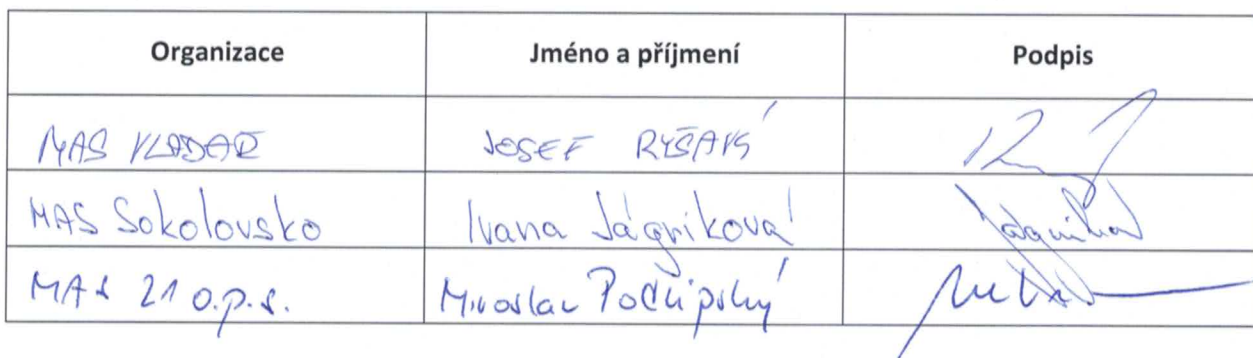 Organizace Jméno a příjmení Podpis
MAS VLADAŘ JOSEF RYŠAVÝ
MAS Sokolovsko Ivana Jágriková
MAS 21 o.p.s. Miroslav Podlipský